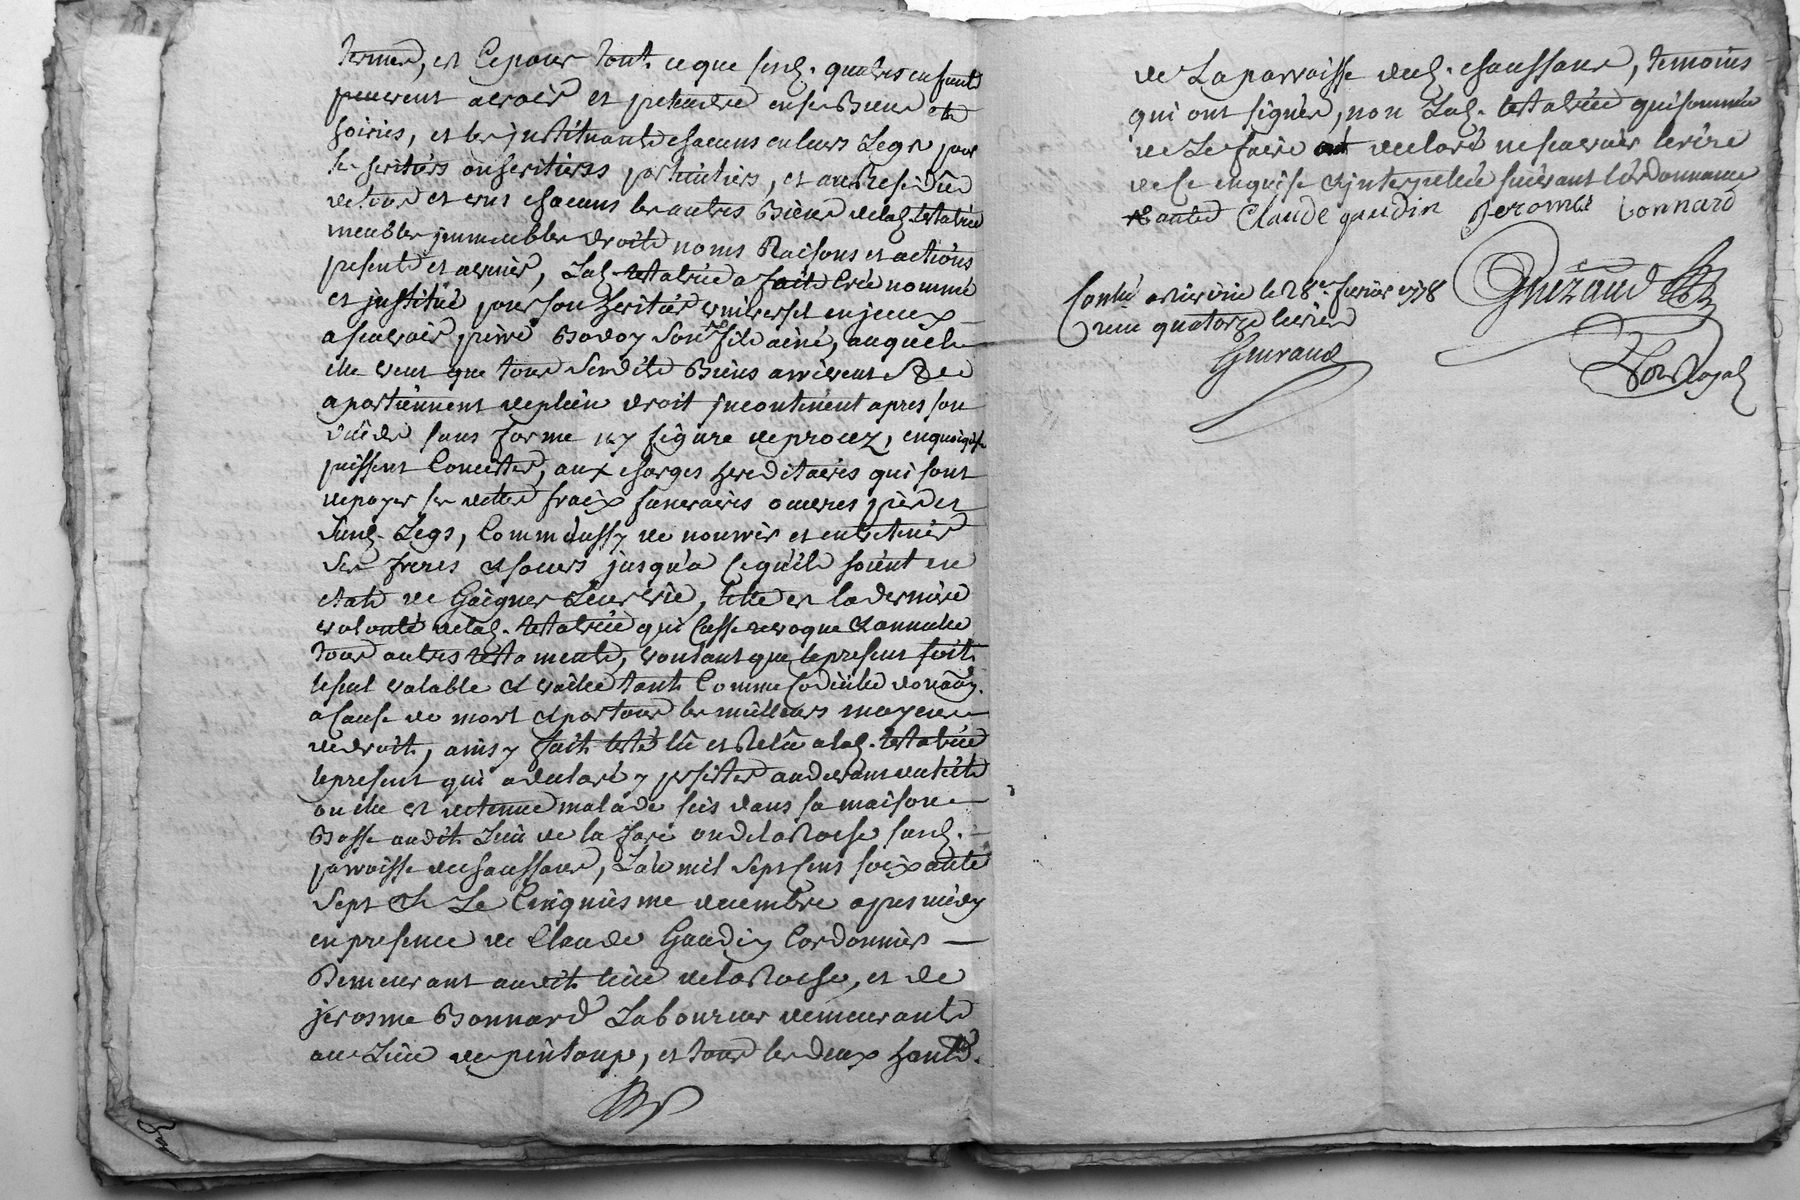 termes, et ce pour tout ce que sesd. quatres enfants
peuvent avoir et pretendre en ses Biens et
hoiries, et les instituants chacuns en leurs Legs pour
ses heritiers ou heritieres particuliers, et au Residu
de tous et uns chacuns les autres Biens de lad. testatrice
meubles immeubles droits noms Raisons et actions
presents et avenir, Lad. testatrice a fait cree nommé
et institué pour son heritier universel
a scavoir, pierre son fils ainé, auquel
elle veut que tous sendits Biens arrivent &
apartiennent de plein droit incontinent apres son
décés sans forme ny figure de procez, en quoi qu'ils
puissent concister, aux charges hereditaires qui sont
de payer ses dettes fraix funeraires œuvres pies et
susd. Legs, Comm'aussy de nourrir et entretenir
Ses freres et sœurs jusqu'a ce qu'ils soient en
etats de Gaigner Leur vie, telle est la derniere
volonté de lad. testatrice qui casse revoque et annulle
tous autres testaments, voulant que le present soit
le seul valable et vaille tant comme codicille donaôn
a cause de mort et par tous les meilleurs moyens
de droit, ainsy fait testé lû et Relû a lad. testatrice
le present qui a declaré y persister au devant du lit
ou elle est detenue malade sis dans sa maison
Basse audit Lieu de la fare ou de la Roche susd.
parroisse de chaussans, L'an mil sept cens soixante
sept & Le Cinquiesme decembre apres midy
en presence de Claude Gaudin Cordonnier
Demeurant audit lieu de la Roche, et de
jerosme Bonnard Laboureur demeurants
au Lieu de, et tous les deux hants.
de La parroisse dud. chaussans, temoins
qui ont signés, non Lad. testatrice qui sommée
de Le faire a declaré ne scavoir ecrire
de ce enquise et interpellée suivant l'ordonnance
Claude gaudin Jerome bonnard
Conllé a le 28e. fevrier 1778
recu quatorze livres
Guiraud